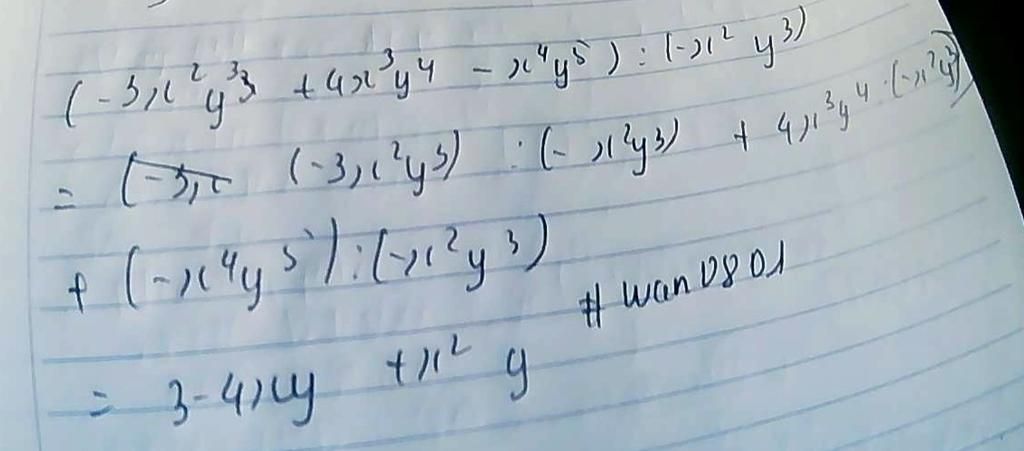 (-3x²y³ + 4x³y⁴ - x⁴y⁵) : (-x² y³)
= (-3x (-3x²y³) : (-x²y³) + 4x³y⁴ . (-x²y³)
+ (-x⁴y⁵) : (-x²y³)
# wan0801
= 3-4xy + x² y